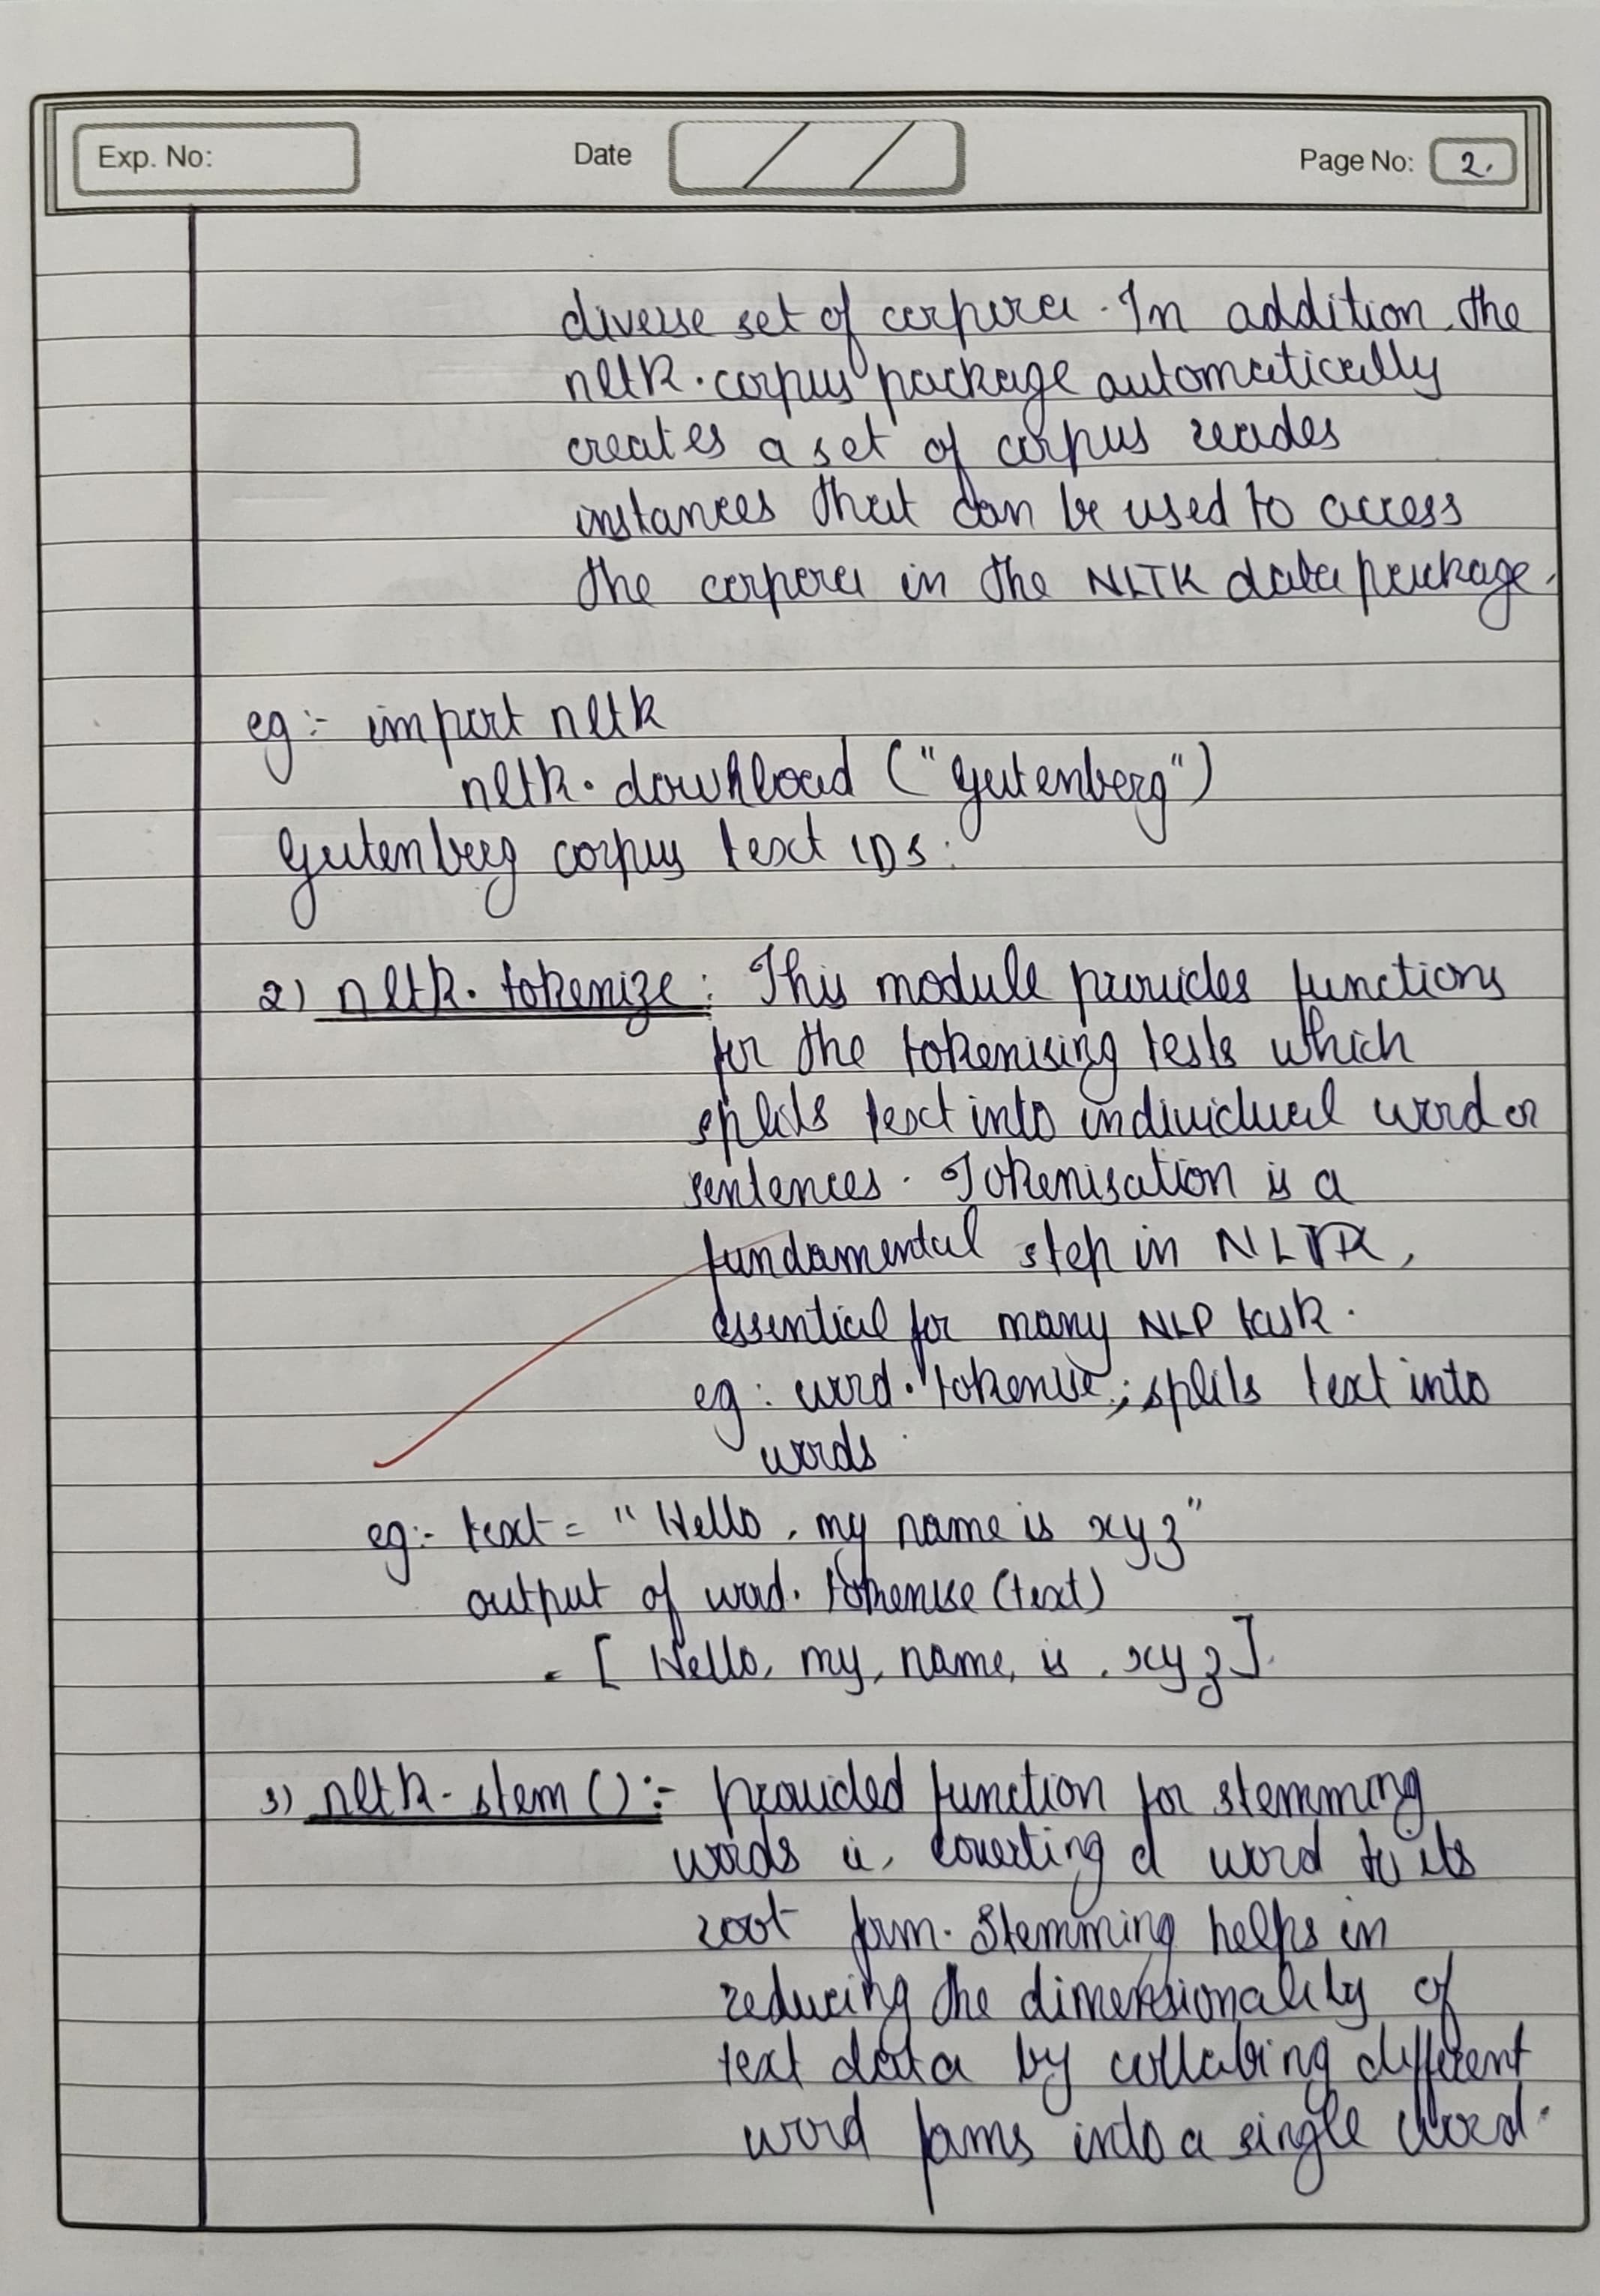 Exp. No:
Date / /
Page No: 2.
diverse set of corpora. In addition, the
nltk.corpus package automatically
creates a set of corpus reades
instances that can be used to access
the corpora in the NLTK data package.
eg:- import nltk
nltk.download ("gutenberg")
Gutenberg corpus text IDs:
2) nltk.tokenize: This module provides functions
for the tokenising tests which
splits text into individual word or
sentences. Tokenisation is a
fundamental step in NLTK,
essential for many NLP task.
eg: word.tokenise; splits text into
words
eg:- text = "Hello, my name is xyz"
output of word.tokenise (text)
= [Hello, my, name, is, xyz].
3) nltk.stem():- provided function for stemming
words ie, coverting a word to its
root form. Stemming helps in
reducing the dimensionality of
text data by collabing different
word forms into a single word.